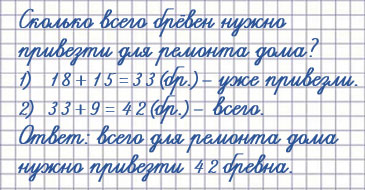 Сколько всего брёвен нужно
привезти для ремонта дома?
1) 18+15=33(бр.)– уже привезли.
2) 33+9=42(бр.)– всего.
Ответ: всего для ремонта дома
нужно привезти 42 бревна.